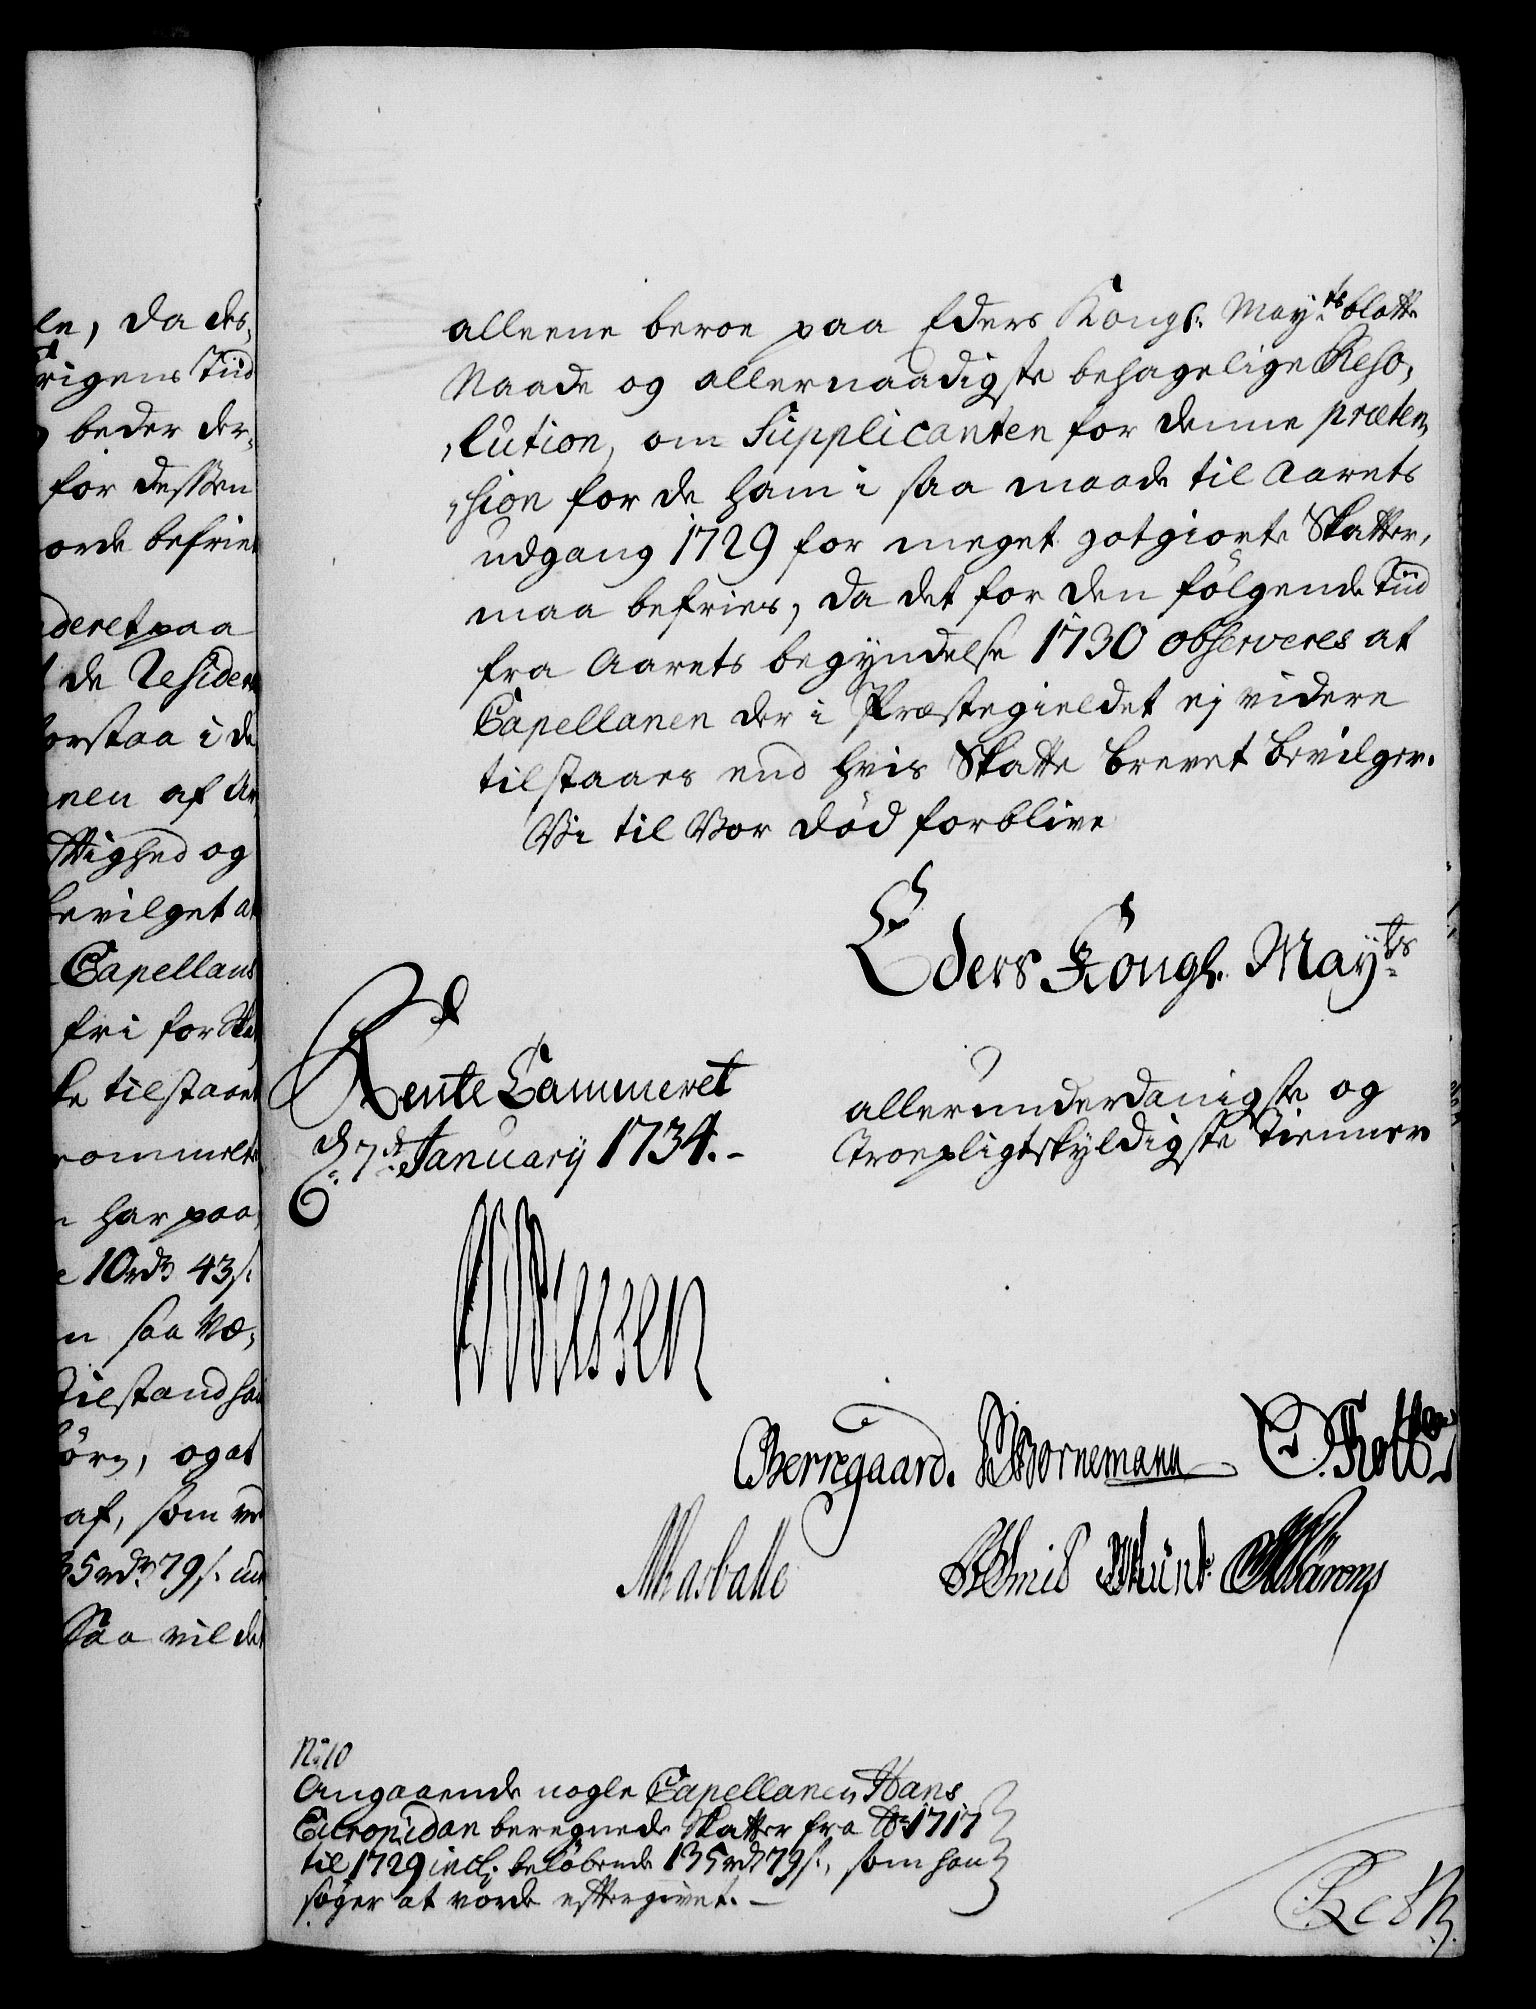 le, da des,
rigens Tiid
beder der,
for dessen
orde befriet
deret paa
de Residen
orstaa i de
nen af Ar
ttighed og
bevilget at
Capellans
fri for Skat
ke tilstaaet
rommelte
har paa,
e 10 rdr 43 s.
n saa Næ,
Tilstand han
börn, og at
af, som ved
35 rdr 79 s. ud
Saa vil det
alleene beroe paa Eders Kongl. May.ts blotte
Naade og allernaadigste behagelige Reso,
,lution, om Supplicanten for denne præten,
,sion for de ham i saa maade til Aarets
udgang 1729 for meget gotgiorte Skatter,
maa befries, da det for den fölgende Tiid
fra Aarets begyndelse 1730 observeres at
Capellanen der i Præstegieldet ej videre
tilstaaes end hvis Skatte brevet bevilger.
Vi til Vor död forblive
Eders Kongl. May.ts
Rente Cammeret
d. 7.de January 1734.-
allerunderdanigste og
Troepligtskyldigste Tienner
Wissen
CBerregaard. Bornemann O. Thott
Masballe Smid Münt Bärons
N.10
Angaaende nogle Capellanen Hans
Euronidan beregnede Skatter fra Ao 1717
til 1729 incl: belöbende 135 rdr 79 s., som han
söger at vorde efftergivet. -